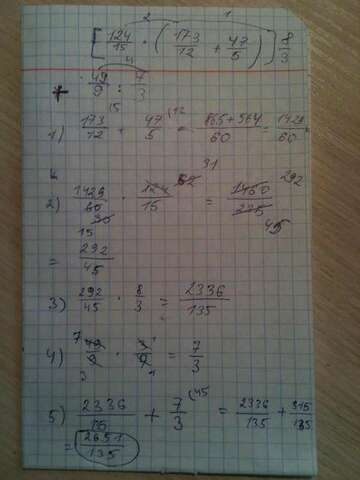 2 1
[124/15 · (173/12 + 47/5)] 8/3
4
+ 49/9 : 7/3
1) 173/12 + 47/5 = 865+564/60 = 1429/60
2) 1429/60 · 124/15 = 1460/225
= 292/45
3) 292/45 · 8/3 = 2336/135
4) 49/9 · 3/7 = 7/3
5) 2336/135 + 7/3 = 2336/135 + 315/135
= 2651/135